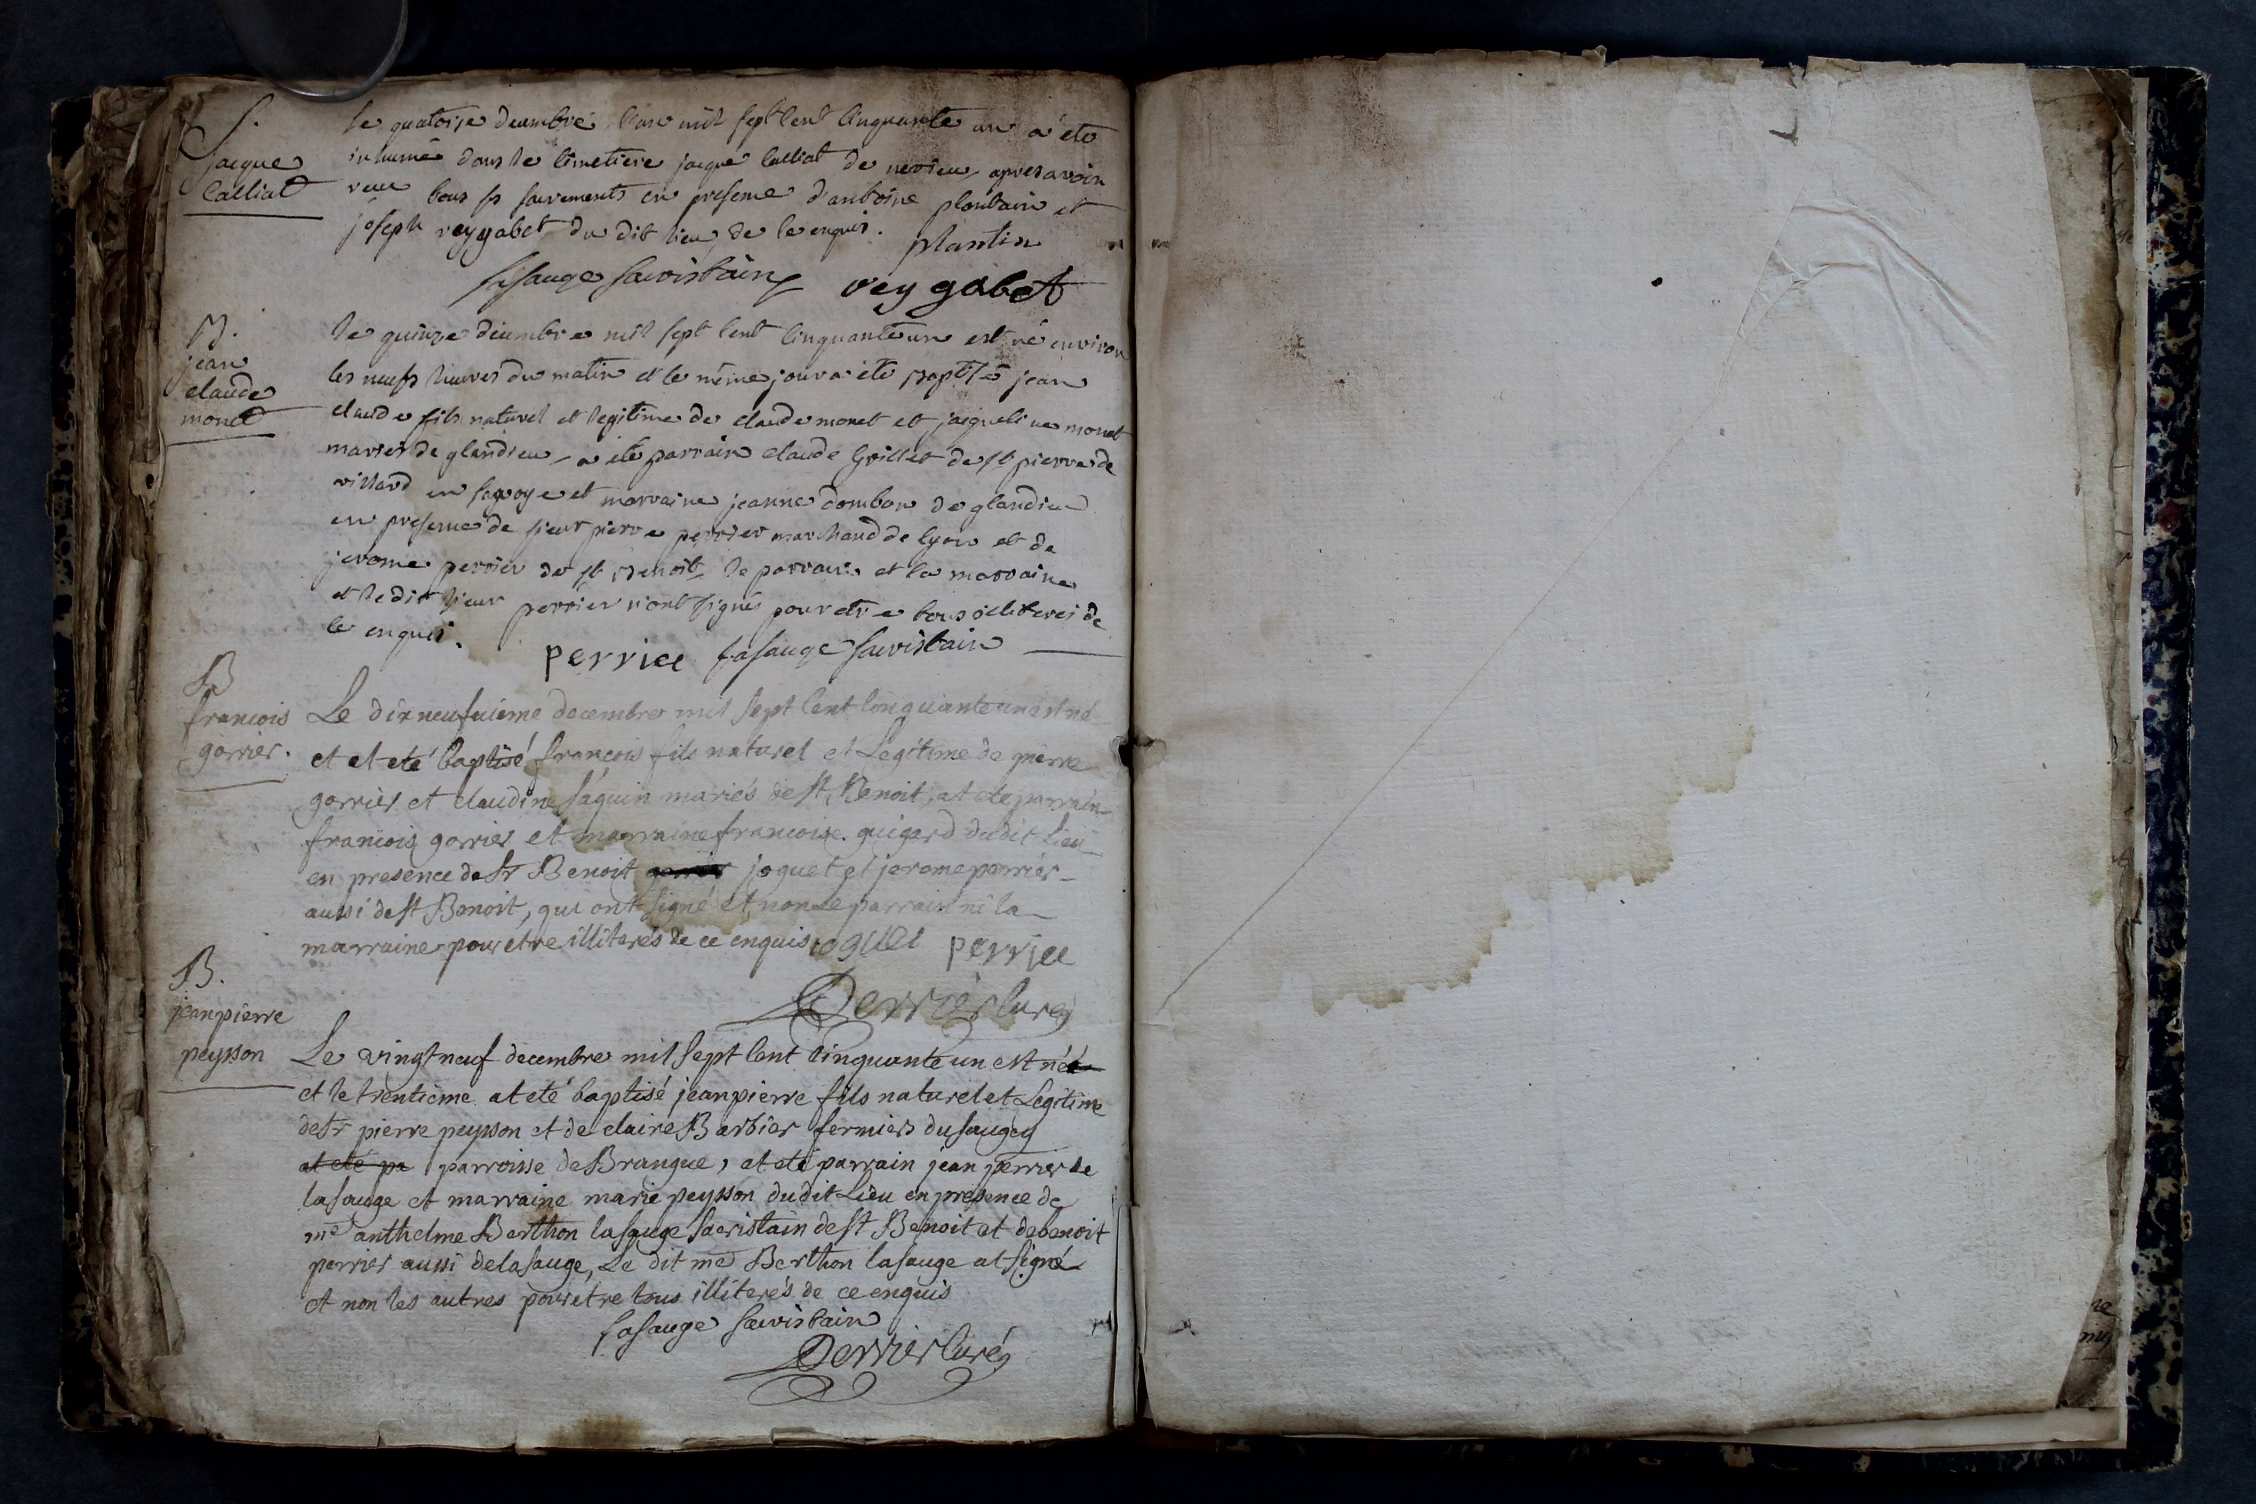 S.
jacque
Calliat
le quatorze decembre l'an mil sept Cent Cinquante un a été
inhumé dans le Cimetiere jacque Calliat de nevieu apres avoir
recu tous ss sacrements en presence d'antoine plontain et
joseph reygabet du dit lieu, de ce enquis. plantin
lasauge sacristain rey gabet
B.
jean
claude
monet
le quinze decembre mil sept Cent Cinquante un est né environ
les neufs heures du matin et le même jour a été baptisé jean
claude fils naturel et legitime de claude monet et jaqueline monet
maries de glandieu, a été parrain claude Grillet de st pierre de
villard en savoye et marraine jeanne dombon de glandieu
en presence de sieur pierre perrier marchand de lyon et de
jerome perrier de st Benoit, le parrain et la marraine
et le dit sieur perrier n'ont signés pour etre tous illiterés de
ce enquis.
perrier lasauge sacristain
B
francois
gorrier.
Le dix neufvieme decembre mil sept Cent Cinquante un est né
et at eté baptisé francois fils naturel et Legitime de pierre
gorrier et claudine saquin mariés de st Benoit, at ete parrain
francois gorrier et marraine francoise guigard dudit lieu
en presence de sr Benoit gorrier joguet et jerome perrier
aussi de st Benoit, qui ont signé et non le parrain ni la
marraine pour être illiterés de ce enquis joguet perrier
Derrier Curé
B.
jean pierre
peysson
Le vingt neuf decembre mil sept Cent Cinquante un est né
et le trentieme at eté baptisé jean pierre fils naturel et Legitime
de sr pierre peysson et de claire Barbier fermiers du saugey
at eté pa parroisse de Brangue, at eté parrain jean perrier de
lasauge et marraine marie peysson dudit Lieu en presence de
me anthelme Berthon lasauge Sacristain de st Benoit et de benoit
perrier aussi de lasauge, Le dit me Berthon lasauge at signé
et non les autres pour etre tous illiterés de ce enquis
lasauge sacristain
Derrier Curé